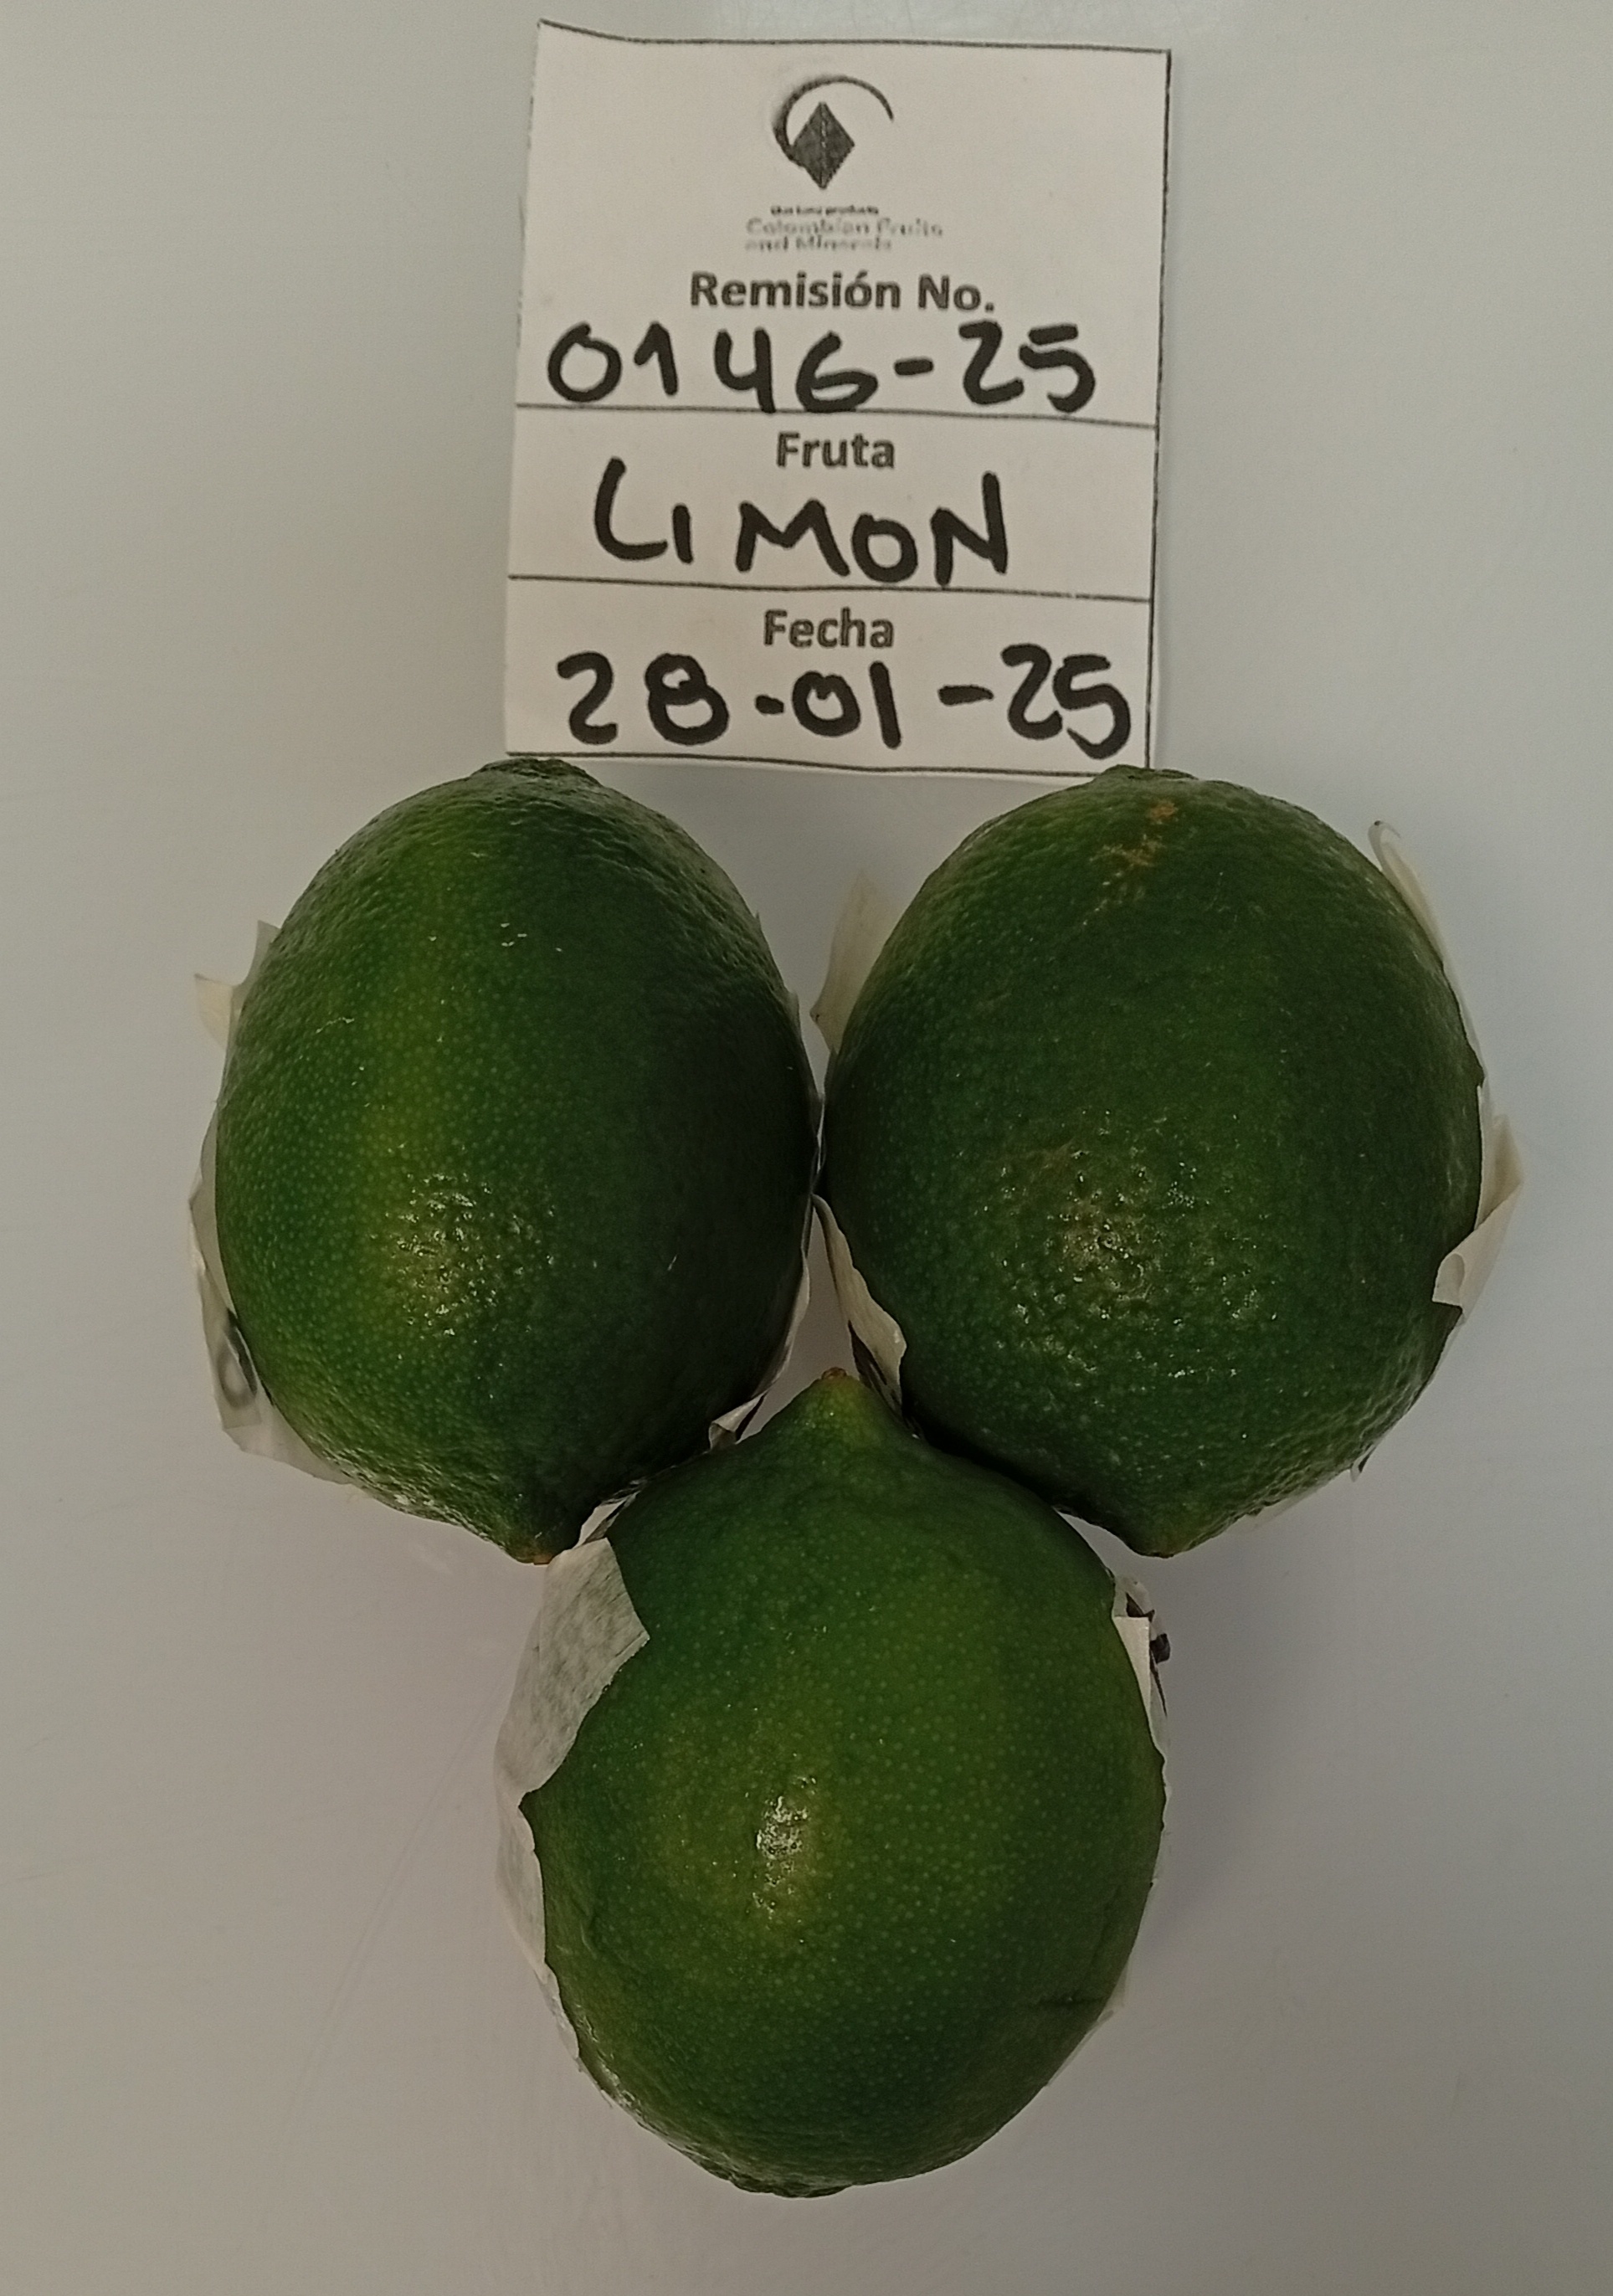 Colombian Fruits
and Minerals
Remisión No.
0146-25
Fruta
LIMON
Fecha
28-01-25